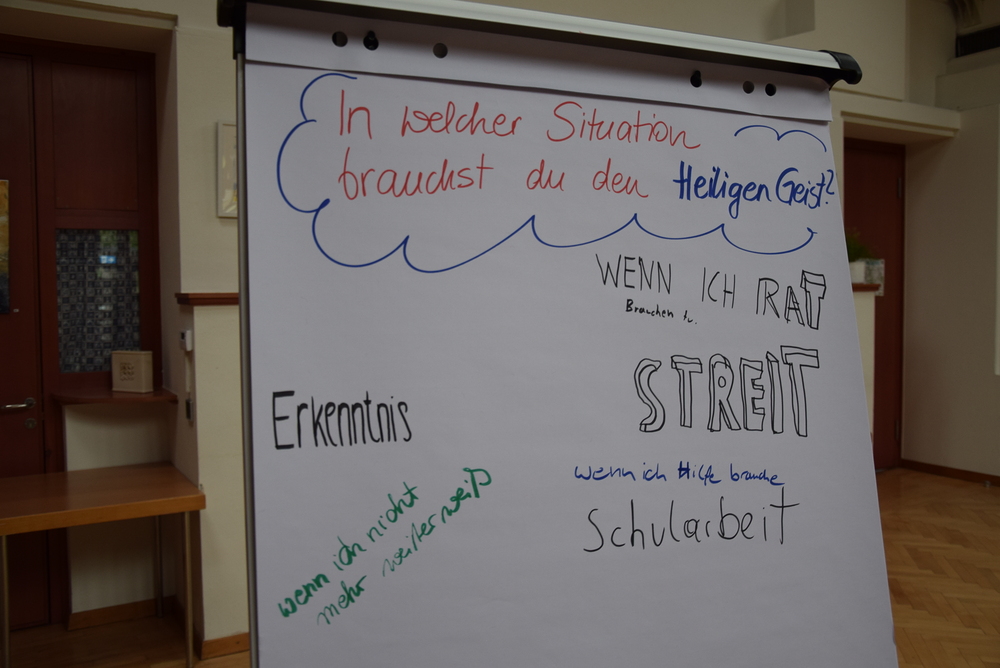 In welcher Situation
brauchst du den Heiligen Geist?
WENN ICH RAT
Brauchen tu.
STREIT
Erkenntnis
wenn ich Hilfe brauche
Schularbeit
wenn ich nicht
mehr weiter weiß